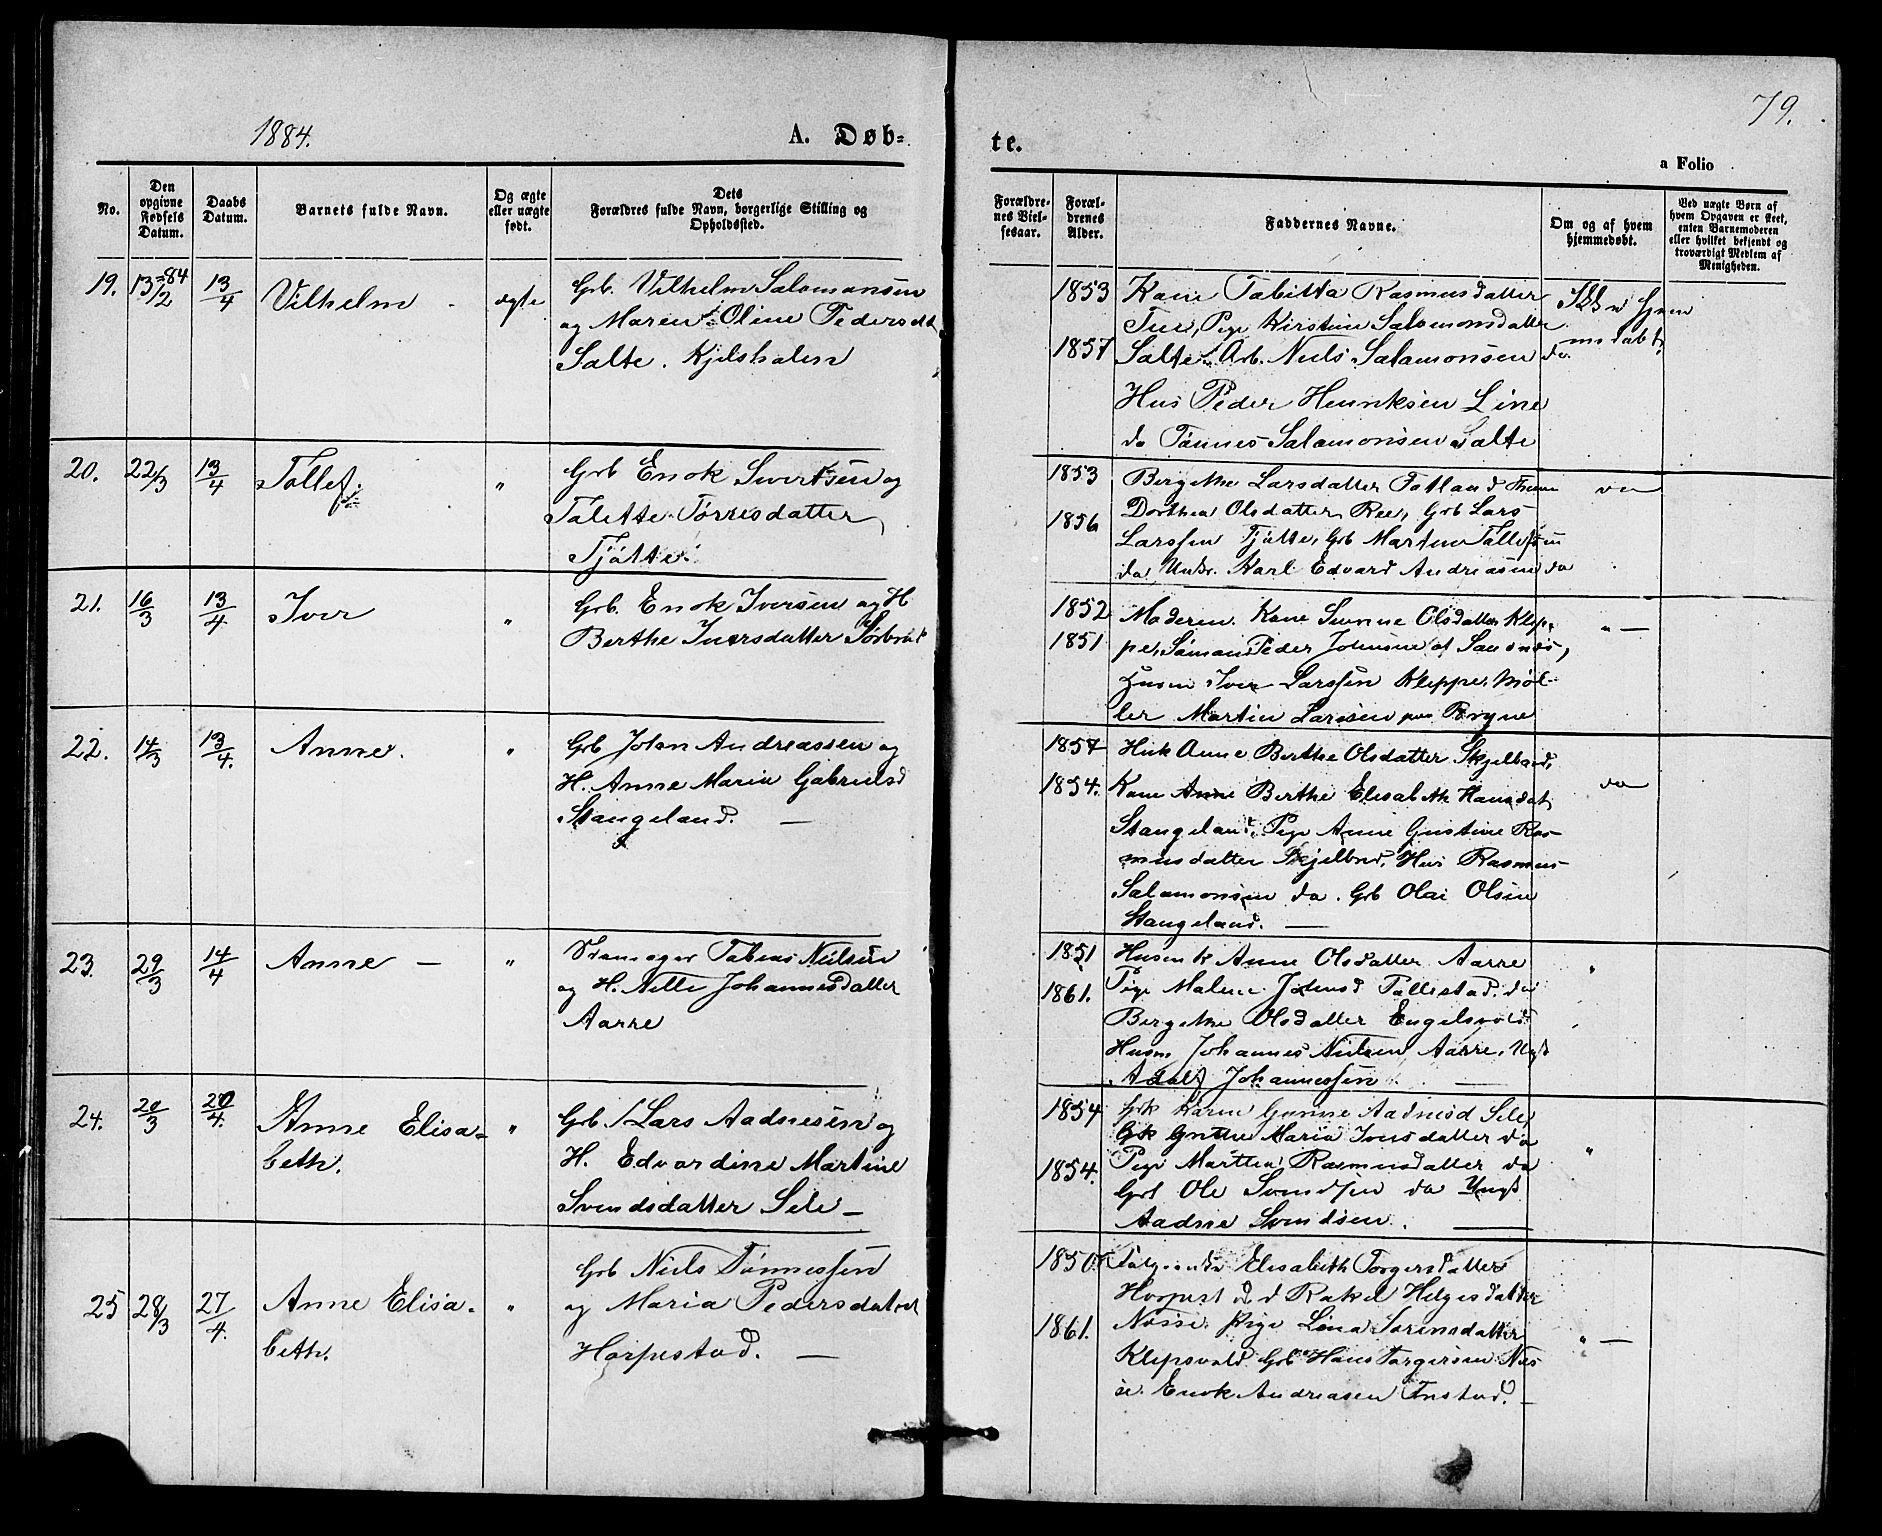 79.
1884.
A. Døb=
te.
a Folio
No.
Den opgivne Fødsels Datum.
Daabs Datum.
Barnets fulde Navn.
Og ægte eller uægte født.
Dets
Forældres fulde Navn, borgerlige Stilling og
Opholdssted.
Forældrenes Vielsesaar.
Forældrenes Alder.
Faddernes Navne.
Om og af hvem
hjemmedøbt.
Ved uægte Børn af
hvem Opgaven er skeet,
enten Barnemoderen
eller hvilket bekjendt og
troværdigt Medlem af
Menigheden.
19. 13/2 =84 13/4 Vilhelm - ægte
Grb. Vilhelm Salomonsen
og Maren Oline Pedersdt
Salte. Kjelshalen
1853
1857
Kone Tabitta Rasmusdatter
Tue, Pige Kirstine Salomonsdatter
Salte Arb. Niels Salamonsen do
Hus Peder Henriksen Line
do Tønnes Salamonsen Salte
20. 22/3 13/4 Tollef. "
Grb Enok Sivertsen og
Talette Tørresdatter
Tjøtte.
1853
1856
Bergethe Larsdatter Fotland
Dorthea Olsdatter Ree, Grb Lars
Larssen Tjøtte, Grb Martin Tollefsen
do Unkr. Karl Edvard Andreasen do
21. 16/3 13/4 Iver "
Grb. Enok Iversen og H.
Berthe Iversdatter
1852
1851
Moderen. Kone Olsdatter Klep-
pe, Sømand Peder Johnsen af Sandnes,
Iver Larssen Kleppe, Møl-
ler Martin Larssen paa Bryne
" —
22. 14/3 13/4. Anne. "
Grb John Andreassen og
H. Anne Maria Gabrielsd
Stangeland. —
1857
1854.
Husk Anne Berthe Olsdatter
Kone Anne Berthe Elisabeth Hansdat
Stangeland, Pige Anne Gustine Ras-
musdatter Hus Rasmus
Salamonsen do. Grb Olai Olsen
Stangeland. —
do
23. 29/3 14/4 Anne — "
Tobias Nielsen
og H. Nille Johannesdatter
Aarre
1851
1861.
Husm k Anne Olsdatter Aarre
Pige Malene Johnsd do
Bergethe Olsdatter Engelsvold
Husm. Johannes Nielsen Aarre, Ungk
Adolf Johannessen. —
"
24. 20/3 20/4. Anne Elisa-
beth. "
Grb. Lars Aadnesen og
H. Edvardine Martine
Svendsdatter Sele —
1854
1854.
Grk Karen Gunne Aadnesd Sele,
Grk Maria Iversdatter do
Pige Marthea Rasmusdatter do
Grb Ole Svendsen do Ungk
Aadne Svendsen. —
"
25 28/3 27/4. Anne Elisa-
beth. "
Grb Niels Tønnessen
og Maria Pedersdatter
Horpestad. —
1850
1861.
Elisabeth Torgersdatter
Horpest Rakel Helgesdatter
Næsse. Pige Lina Sørensdatter
Grb Hans Torgersen Næs-
se. Enok Andreasen
" —